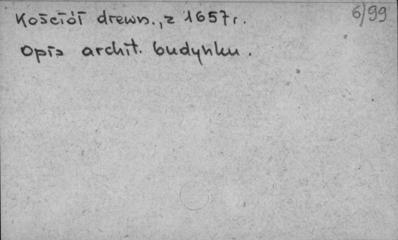 6/99
Kościół drewn., z 1657 r.
Opis archit. budynku.